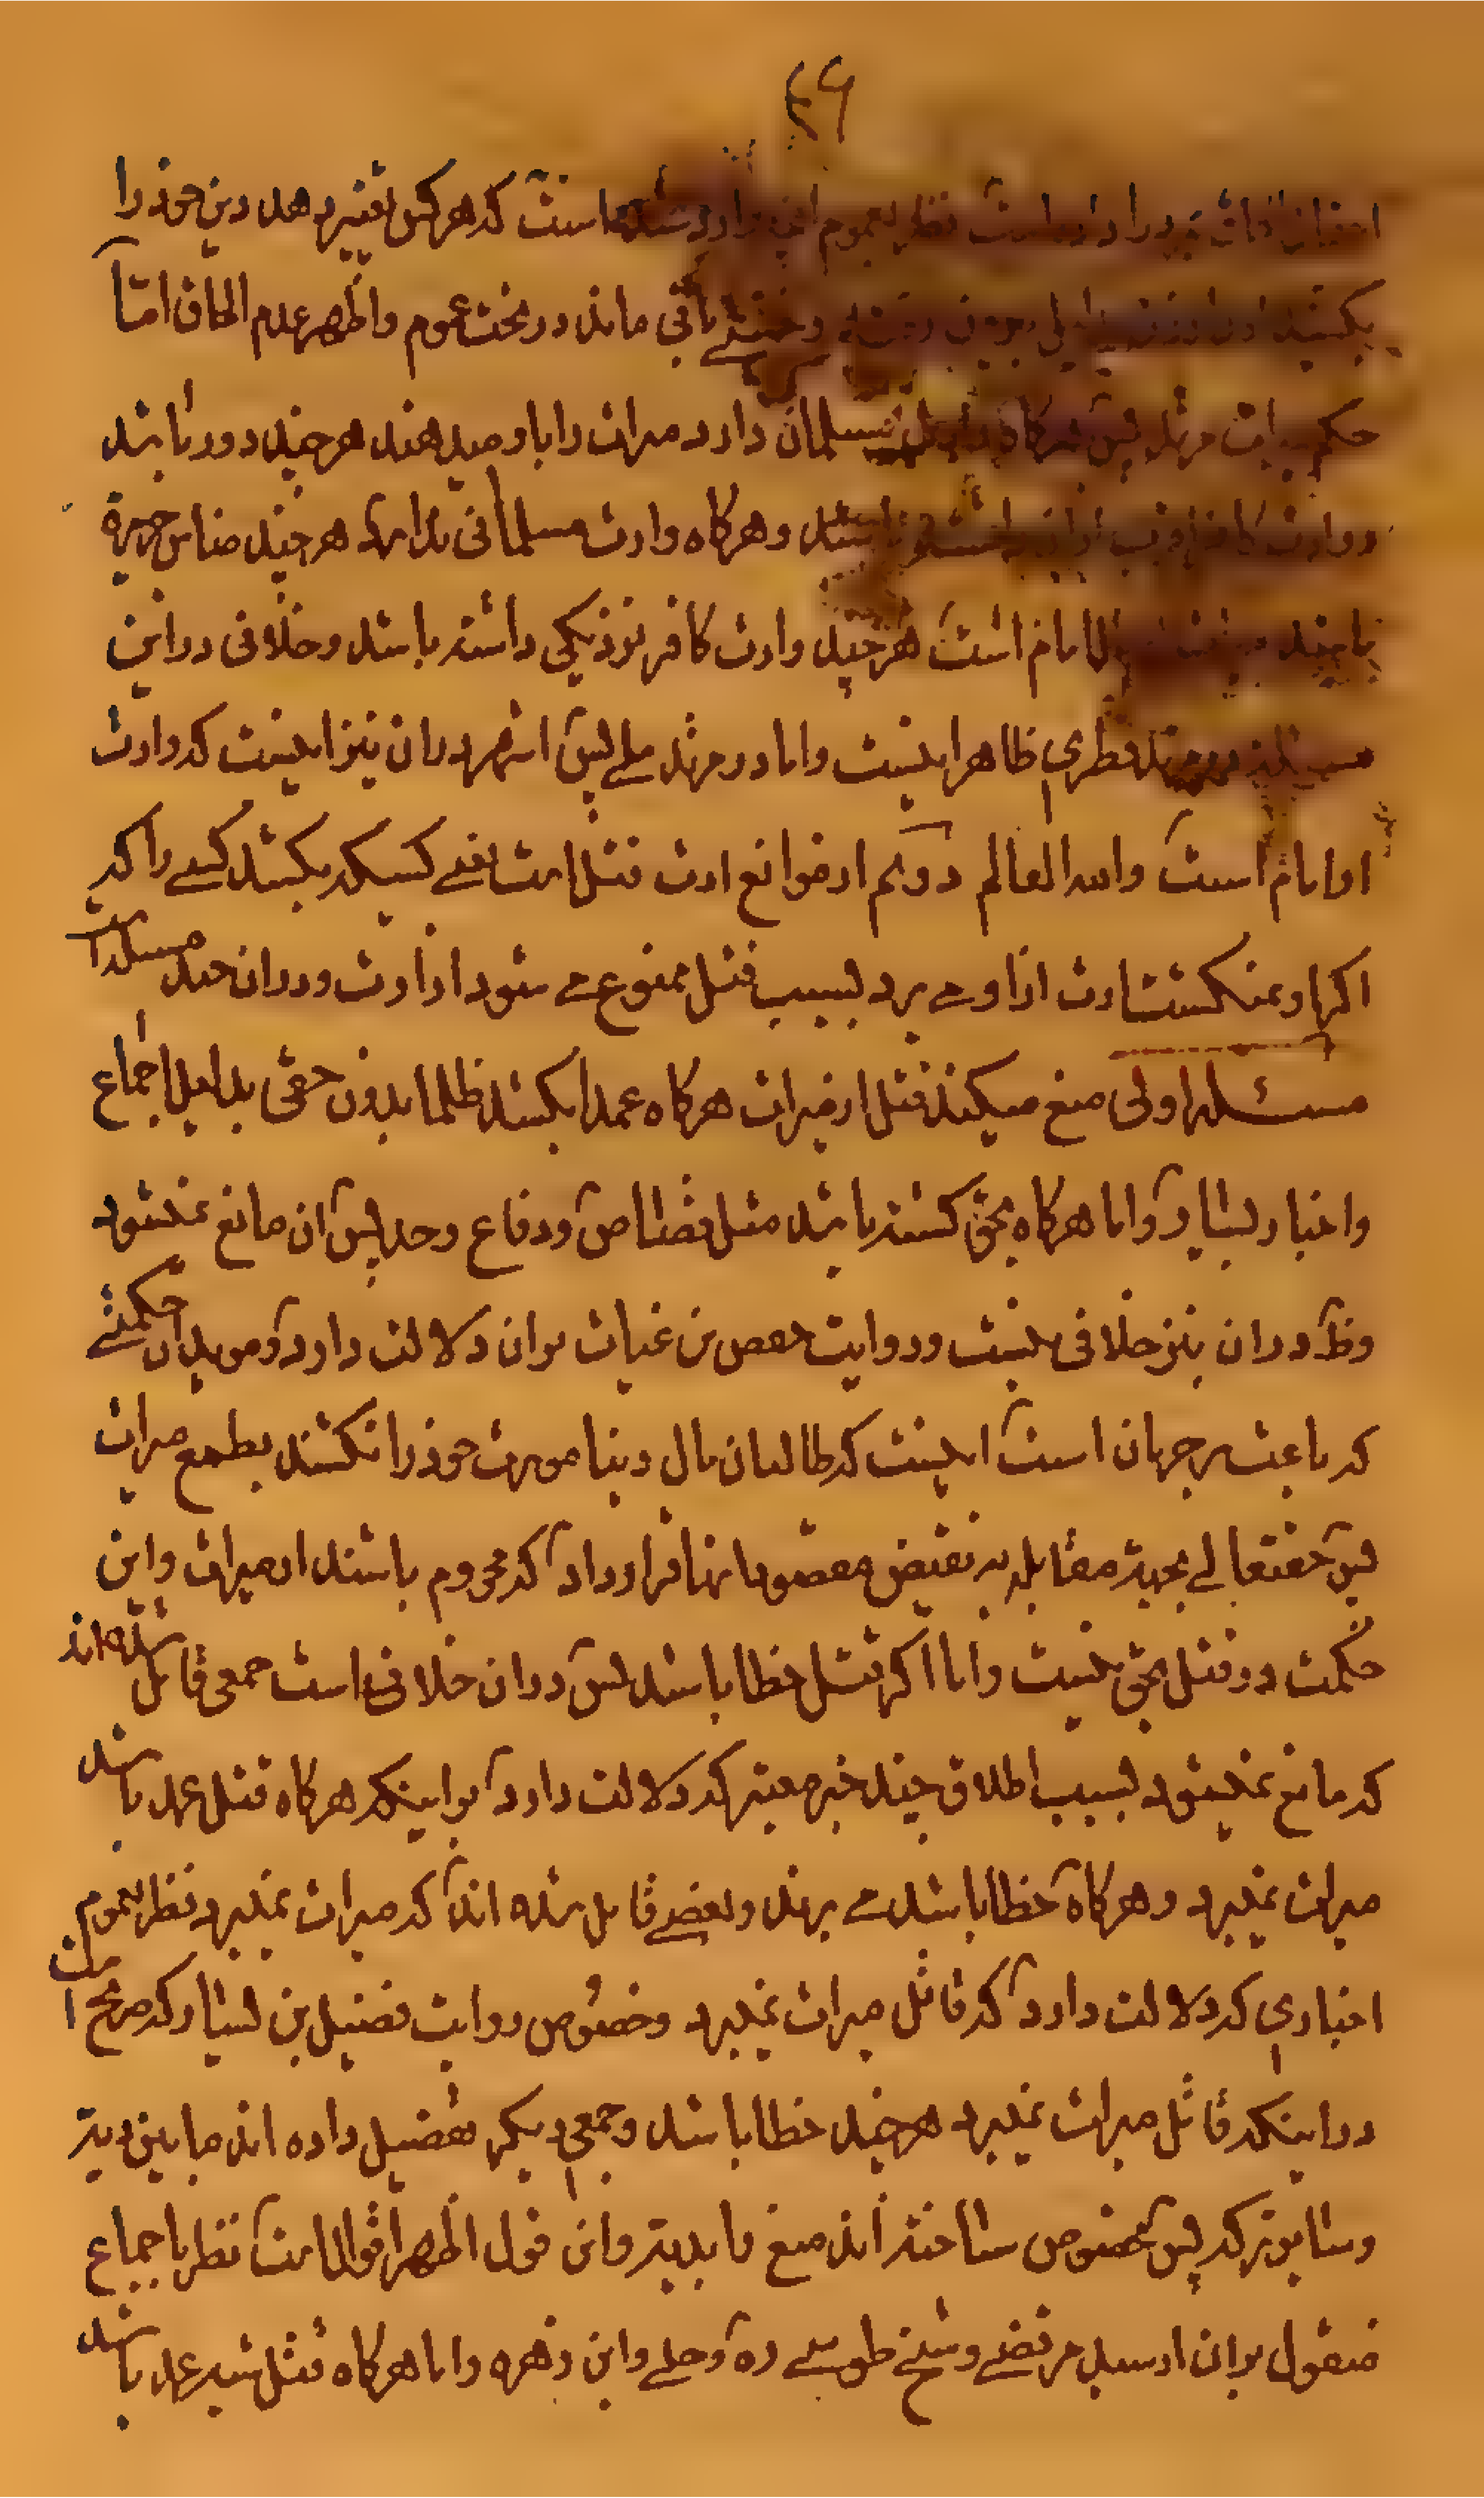 ۴۶
است که هرکس تغییر دهد دین خود را
بکشید باقی ماند در تحت عموم واظهر عدم الحاق امّا
حکم میراث مرتد پس هرکاه مسلمان دارد میراث را باو میدهند هرچند دور باشد
و وارث کافر باشد و هرکاه وارث مسلمانی ندارد هرچند ضامن جریرة
باشد امام است هرچند وارث کافر نزدیکی داشته باشد وخلافی در این
مسئله در مرتد فطری ظاهرا نیست واما در مرتد ملے پس اشهر در ان نیز اینست که وارث
او امام است والله العالم دویم از موانع ارث قتل است یعنے کسیکه بکشد کسے را که
اکر او نمیکشت ارث از او مے برد بسبب قتل ممنوع مے شود از ارث ودران چند مسئله است
مسئله اولی منع میکند قتل از میراث هرکاه عمدا بکشد ظلما بدون حقی بدلیل اجماع
واخبار بسیار واما هرکاه بحق کشته باشد مثل قصاص ودفاع وحد پس ان مانع نمیشود
وظ دران نیز خلافی نیست وروایت حفص بن غیاث بران دلالت دارد ومؤید ان حکمتے
که باعث حرمان است اینست که طالبان مال دنیا مورث خود را نکشند بطمع میراث
پس حقتعالے بجهة مقابله به نقیض مقصود انها قرار داد که محروم باشند از میراث واین
حکمت در قتل بحق نیست واما اکر قتل خطا باشد پس دران خلافی است جمعی قائل شده اند
که مانع نمیشود بسبب اطلاق چند خبر معتبر که دلالت دارد بر اینکه هرکاه قتل عمد باشد
میراث نمیبرد وهرکاه خطا باشد مے برند وبعضے قایل شده اند که میراث نمیبرد نظر بعموم
اخباری که دلالت دارد که قاتل میراث نمیبرد وخصوص روایت فضیل بن یسار که صریح است
در اینکه قاتل میراث نمیبرد هرچند خطا باشد وجمعی دیکر تفصیل داده اند مابین دیة
وسایر ترکه پس مخصوص ساخته اند منع را بدیة واین قول اظهر اقوال است نظر باجماع
منقول بران از سید مرتضے وشیخ طوسے ره وحلے وابن زهره واما هرکاه قتل شبه عمد باشد